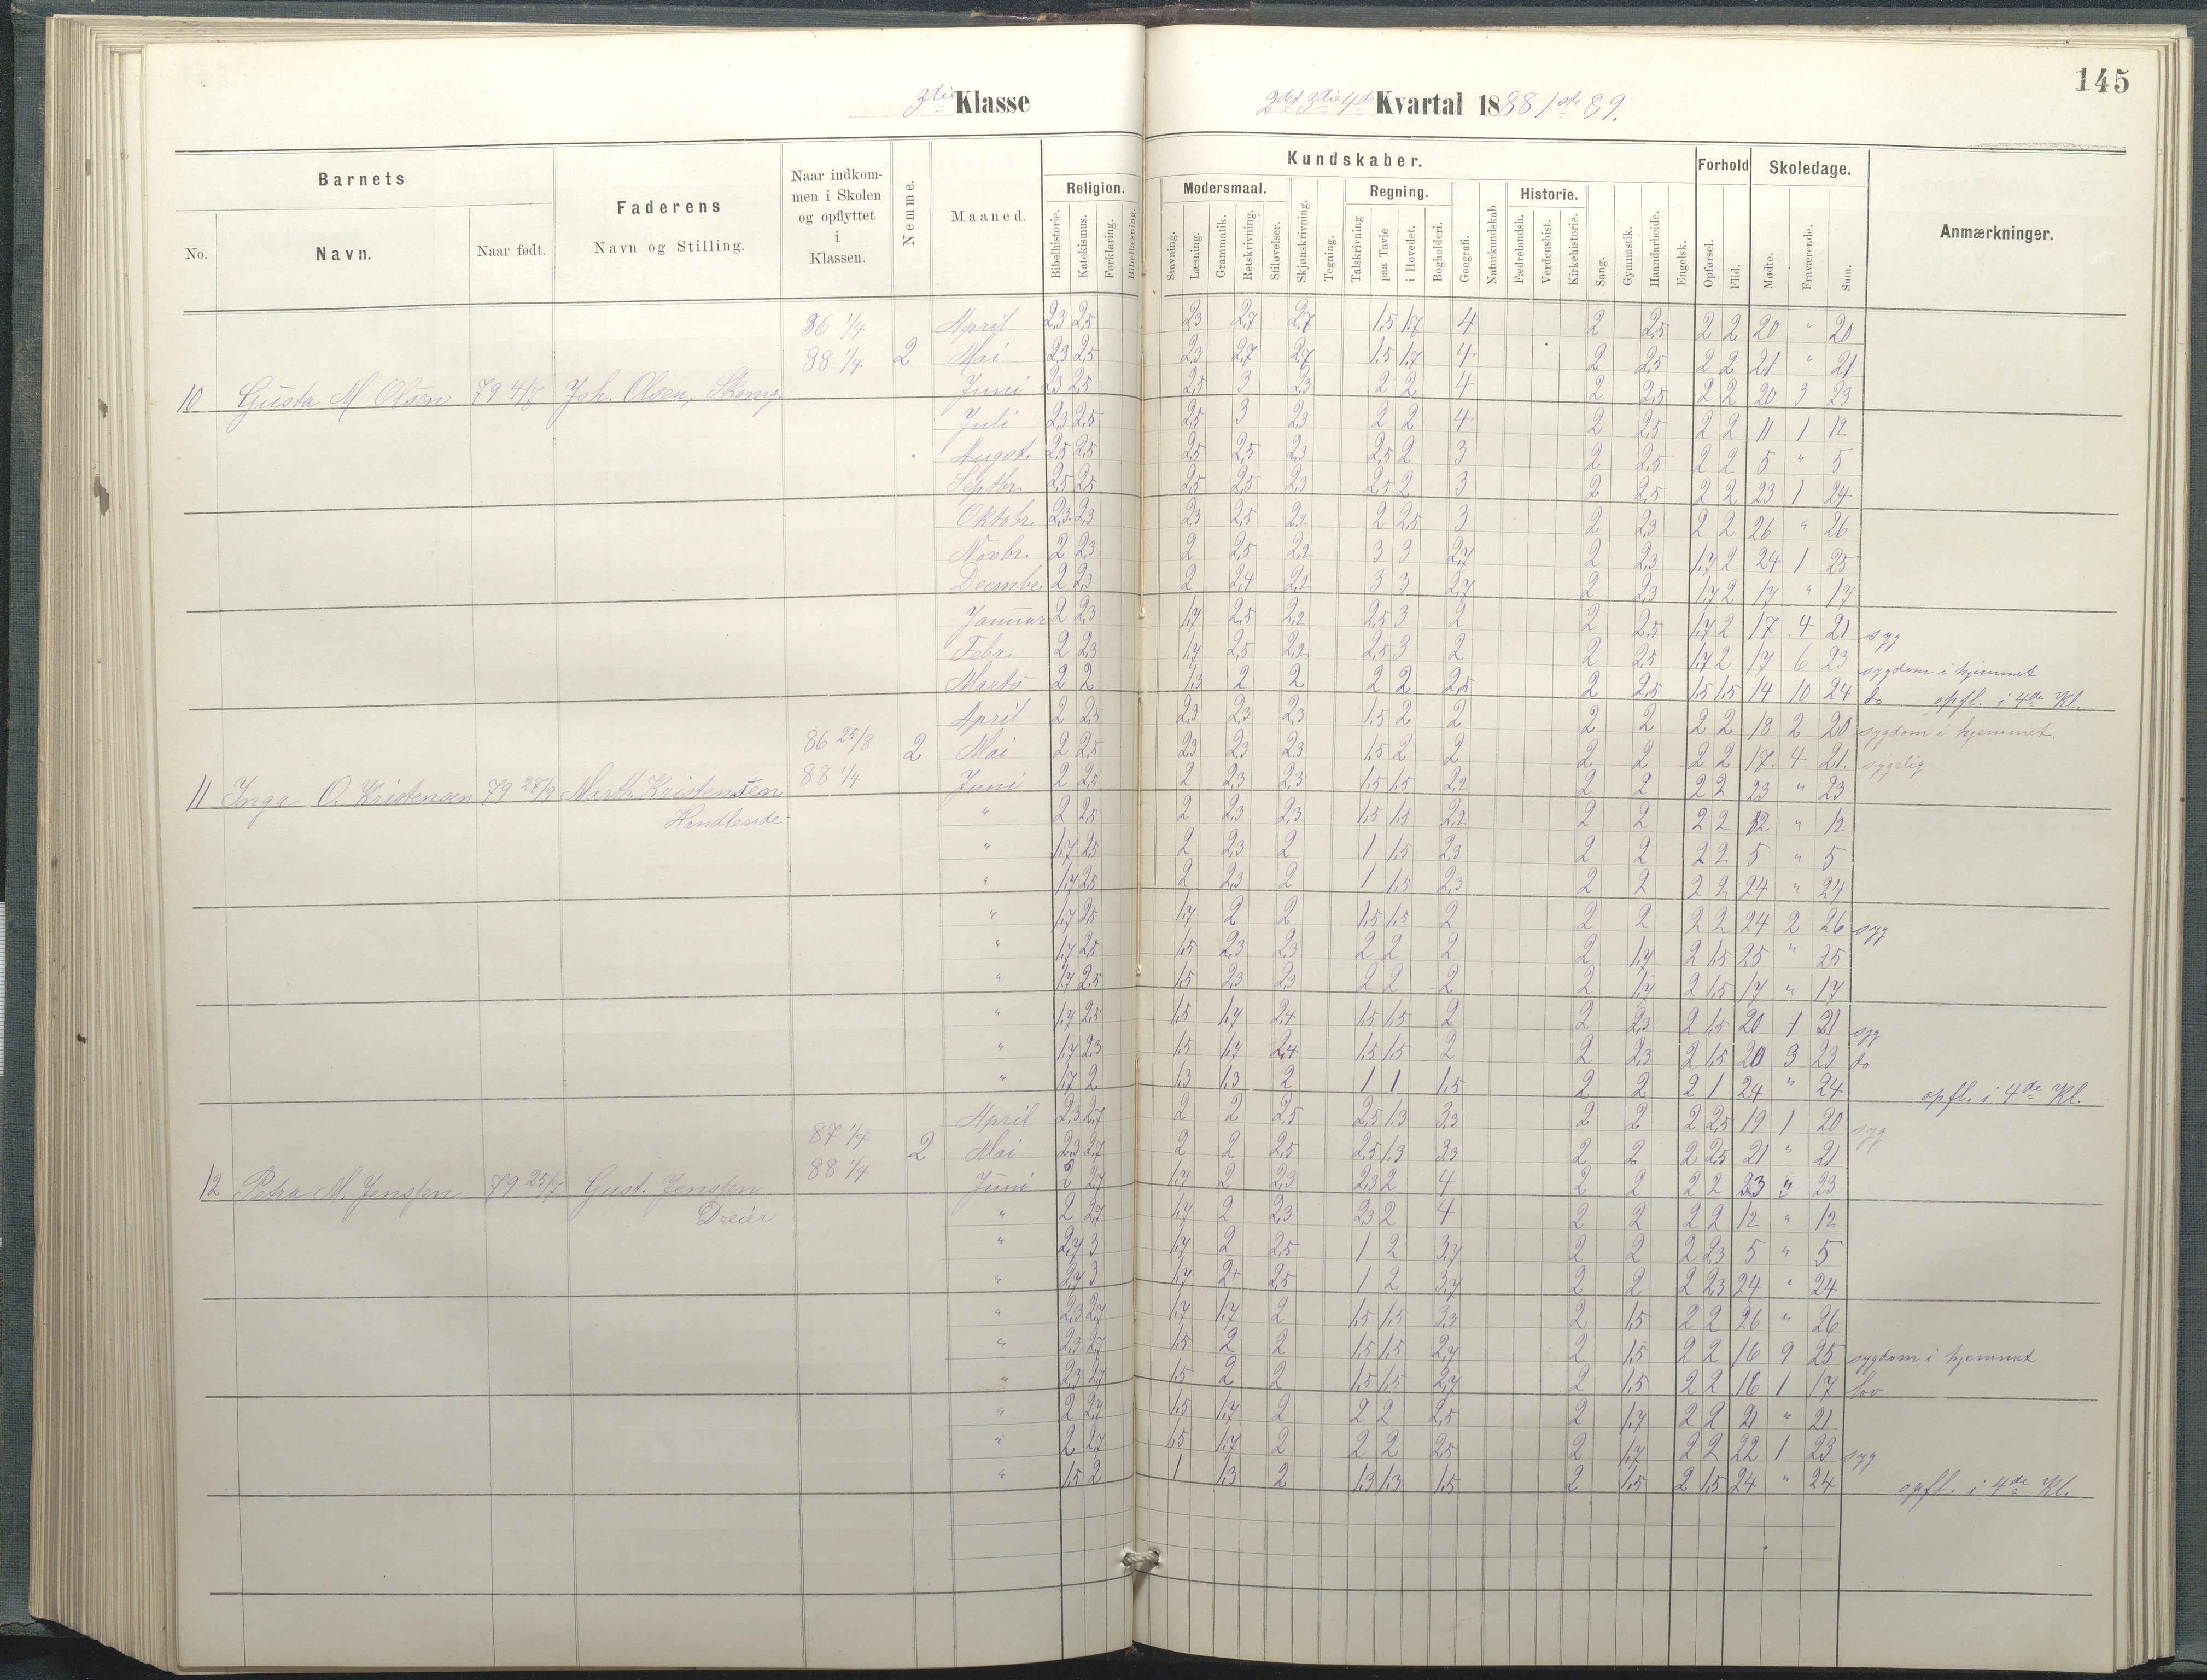 145
3die Klasse 2det 3die 4de Kvartal 1888 1ste 89.
Barnets Faderens Naar indkommen i Skolen og opflyttet i Klassen. Nemme. Maaned. Kundskaber. Forhold Skoledage. Anmærkninger.
No. Navn. Naar født. Navn og Stilling. Religion. Modersmaal. Regning. Historie.
Bibelhistorie. Katekismus. Forklaring. Bibellæsning. Stavning. Læsning. Grammatik. Retskrivning. Stiløvelser. Skjønskrivning. Tegning. Talskrivning paa Tavle i Hovedet. Bogholderi. Geografi. Naturkundskab Fædrelandsh. Verdenshist. Kirkehistorie. Sang. Gymnastik. Haandarbeide. Engelsk. Opførsel. Flid. Mødte. Fraværende. Sum.
86 1/4 April 2,3 2,5 2,3 2,7 2,7 1,5 1,7 4 2 2,5 2 2 20 " 20
88 1/4 2 Mai 2,3 2,5 2,3 2,7 2,7 1,5 1,7 4 2 2,5 2 2 21 " 21
10 Gusta M Olsen 79 4/7 Joh. Olsen, Juni 2,3 2,5 2,5 3 2,3 2 2 4 2 2,5 2 2 20 3 23
Juli 2,3 2,5 2,5 3 2,3 2 2 4 2 2,5 2 2 11 1 12
August. 2,5 2,5 2,5 2,5 2,3 2,5 2 3 2 2,5 2 2 5 " 5
Septbr. 2,5 2,5 2,5 2,5 2,3 2,5 2 3 2 2,5 2 2 23 1 24
Oktobr. 2,3 2,3 2,3 2,5 2,2 2 2,5 3 2 2,3 2 2 26 " 26
Novbr. 2 2,3 2 2,5 2,2 3 3 2,7 2 2,3 1,7 2 24 1 25
Decmbr. 2 2,3 2 2,4 2,2 3 3 2,7 2 2,3 1,7 2 17 " 17
Januar 2 2,3 1,7 2,5 2,2 2,5 3 2 2 2,5 1,7 2 17 4 21 syg
Febr. 2 2,3 1,7 2,5 2,2 2,5 3 2 2 2,5 1,7 2 17 6 23 sygdom i hjemmet
Marts 2 2 1,3 2 2 2 2 2,5 2 2,5 1,5 1,5 14 10 24 do opfl. i 4de Kl.
April 2 2,5 2,3 2,3 2,3 1,5 2 2 2 2 2 2 18 2 20 sygdom i hjemmet.
86 25/8 88 1/4 2 Mai 2 2,5 2,3 2,3 2,3 1,5 2 2 2 2 2 2 17. 4 21. sygelig
11 Inga O. Kristensen 79 27/9 Marth. Kristensen Juni 2 2,5 2 2,3 2,3 1,5 1,5 2,2 2 2 2 2 23 " 23
Handlende " 2 2,5 2 2,3 2,3 1,5 1,5 2,2 2 2 2 2 12 " 12
" 1,7 2,5 2 2,3 2 1 1,5 2,3 2 2 2 2 5 " 5
" 1,7 2,5 2 2,3 2 1 1,5 2,3 2 2 2 2 24 " 24
" 1,7 2,5 1,7 2 2 1,5 1,5 2 2 2 2 2 24 2 26 syg
" 1,7 2,5 1,5 2,3 2,3 2 2 2 2 1,7 2 1,5 25 " 25
" 1,7 2,5 1,5 2,3 2,3 2 2 2 2 1,7 2 1,5 17 " 17
" 1,7 2,5 1,5 1,7 2,4 1,5 1,5 2 2 2,3 2 1,5 20 1 21 syg
" 1,7 2,3 1,5 1,7 2,4 1,5 1,5 2 2 2,3 2 1,5 20 3 23 do
" 1,7 2 1,3 1,3 2 1 1 1,5 2 2 2 1 24 " 24 opfl. i 4de Kl.
April 2,3 2,7 2 2 2,5 2,5 1,3 3,3 2 2 2 2,5 19 1 20 syg
87 1/4 88 1/4 2 Mai 2,3 2,7 2 2 2,5 2,5 1,3 3,3 2 2 2 2,5 21 " 21
12 Petra M. Jenssen 79 25/7 Gust. Jenssen Juni 2 2,7 1,7 2 2,3 2,3 2 4 2 2 2 2 23 " 23
Dreier " 2 2,7 1,7 2 2,3 2,3 2 4 2 2 2 2 12 " 12
" 2,7 3 1,7 2 2,5 1 2 3,7 2 2 2 2,3 5 " 5
" 2,7 3 1,7 2+ 2,5 1 2 3,7 2 2 2 2,3 24 " 24
" 2,3 2,7 1,7 1,7 2 1,5 1,5 3,3 2 1,5 2 2 26 " 26
" 2,3 2,7 1,5 2 2 1,5 1,5 2,7 2 1,5 2 2 16 9 25 sygdom i hjemmet
" 2,3 2,7 1,5 2 2 1,5 1,5 2,7 2 1,5 2 2 16 1 17 lov
" 2 2,7 1,5 1,7 2 2 2 2,5 2 1,7 2 2 21 " 21
" 2 2,7 1,5 1,7 2 2 2 2,5 2 1,7 2 2 22 1 23 syg
" 1,5 2 1 1,3 2 1,3 1,3 1,5 2 1,5 2 1,5 24 " 24 opfl. i 4de Kl.